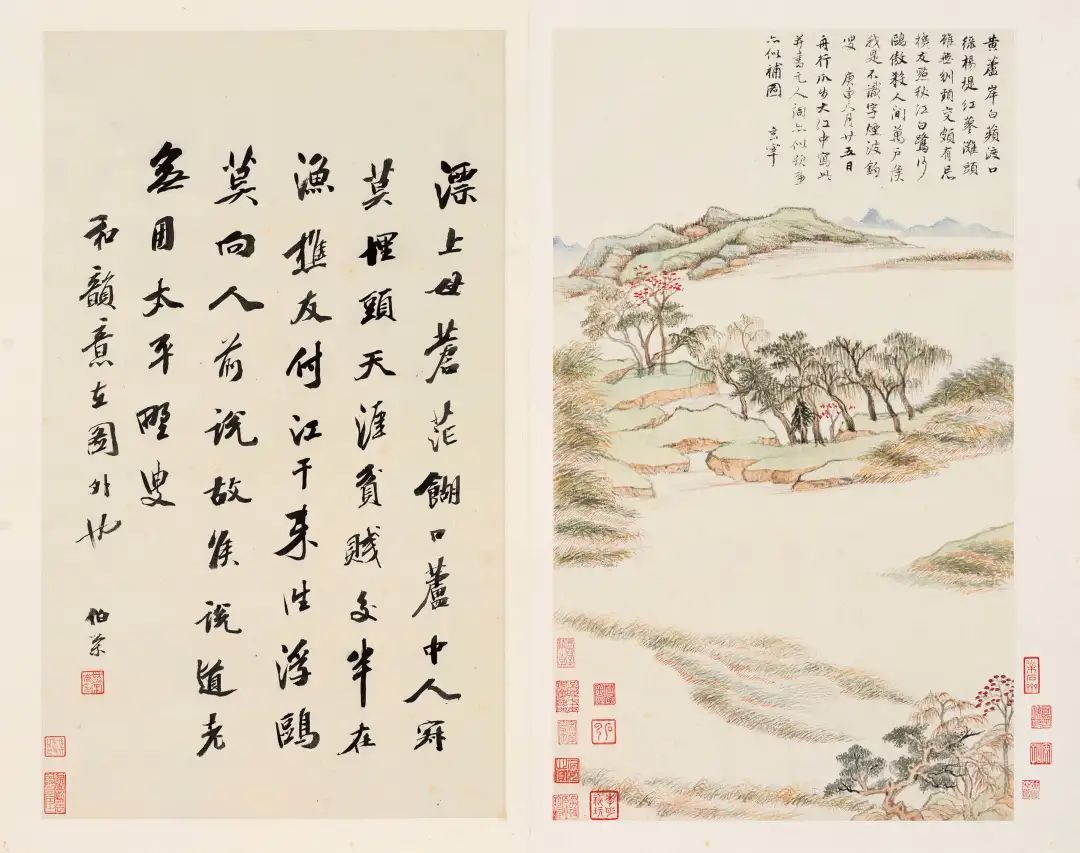 黄蘆岸白蘋渡口
綠楊堤紅蓼灘頭
雖無刎頸交頗有忘
機友點秋江白鷺沙
鷗傲殺人間萬戶侯
我是不識字煙波釣
叟 庚申八月廿五日
舟行瓜步大江中寫此
并書元人詞
補圖
漂上母蒼茫餬口蘆中人寂
莫埋頭天涯貧賤交半在
漁樵友付江干來往浮鷗
莫向人前說故侯說道老
無用太平野叟
和韻意在圖外也
伯紫